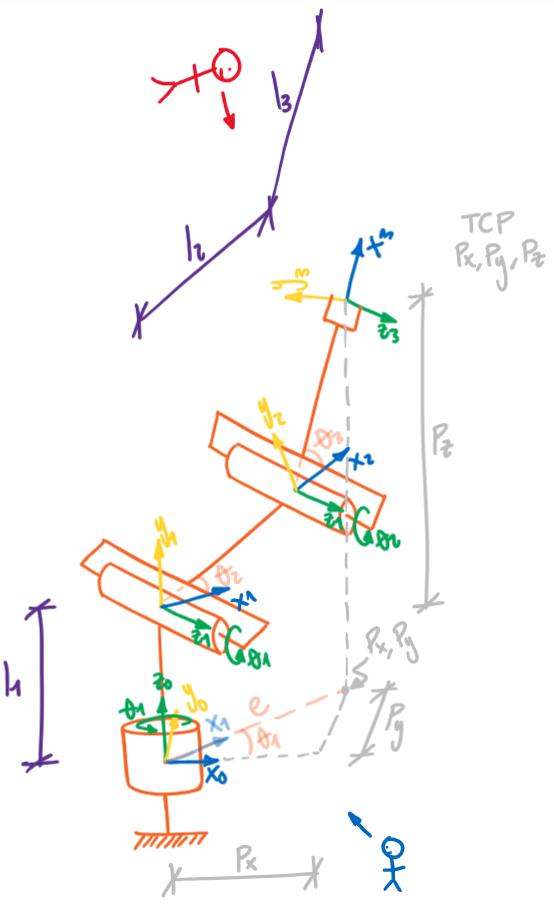 l3
l2
TCP
Px, Py, Pz
x3
y3
z3
Pz
y2
θ3
x2
z1
θ2
y1
θ2
x1
z1
θ1
l1
Px, Py
z0
y0
θ1
x1
e
θ1
x0
Py
Px